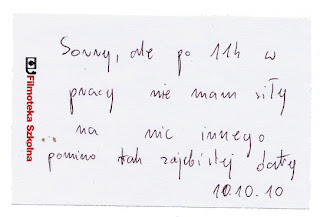 Sorry, ale po 11h w
pracy nie mam siły
na nic innego
pomimo tak zajebistej daty
10.10.10
Filmoteka Szkolna